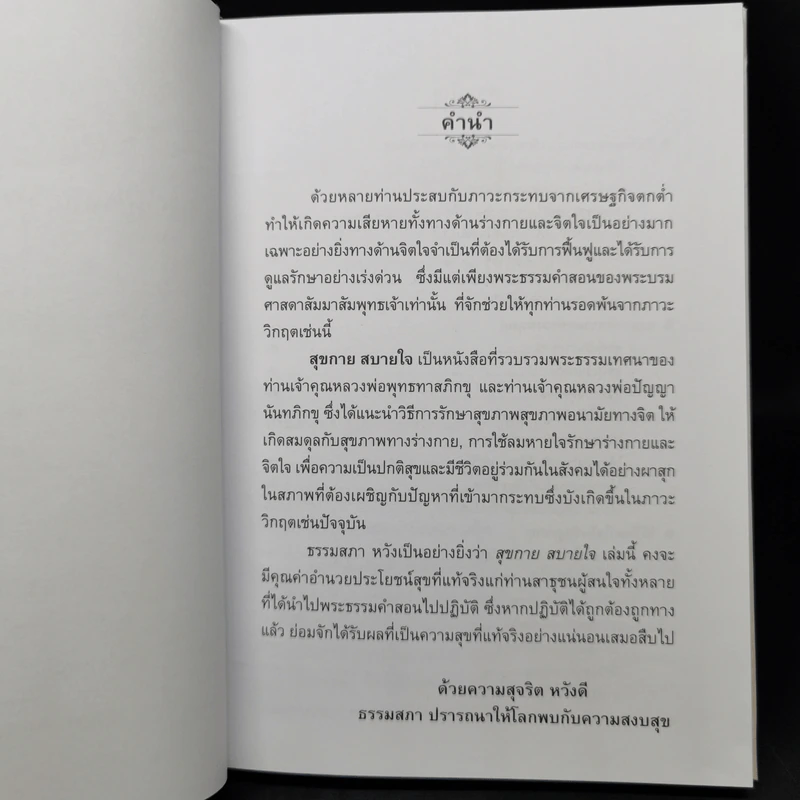 คำนำ
ด้วยหลายท่านประสบกับภาวะกระทบจากเศรษฐกิจตกต่ำ
ทำให้เกิดความเสียหายทั้งทางด้านร่างกายและจิตใจเป็นอย่างมาก
เฉพาะอย่างยิ่งทางด้านจิตใจจำเป็นที่ต้องได้รับการฟื้นฟูและได้รับการ
ดูแลรักษาอย่างเร่งด่วน ซึ่งมีแต่เพียงพระธรรมคำสอนของพระบรม
ศาสดาสัมมาสัมพุทธเจ้าเท่านั้น ที่จักช่วยให้ทุกท่านรอดพ้นจากภาวะ
วิกฤตเช่นนี้
สุขกาย สบายใจ เป็นหนังสือที่รวบรวมพระธรรมเทศนาของ
ท่านเจ้าคุณหลวงพ่อพุทธทาสภิกขุ และท่านเจ้าคุณหลวงพ่อปัญญา
นันทภิกขุ ซึ่งได้แนะนำวิธีการรักษาสุขภาพสุขภาพอนามัยทางจิต ให้
เกิดสมดุลกับสุขภาพทางร่างกาย, การใช้ลมหายใจรักษาร่างกายและ
จิตใจ เพื่อความเป็นปกติสุขและมีชีวิตอยู่ร่วมกันในสังคมได้อย่างผาสุก
ในสภาพที่ต้องเผชิญกับปัญหาที่เข้ามากระทบซึ่งบังเกิดขึ้นในภาวะ
วิกฤตเช่นปัจจุบัน
ธรรมสภา หวังเป็นอย่างยิ่งว่า สุขกาย สบายใจ เล่มนี้ คงจะ
มีคุณค่าอำนวยประโยชน์สุขที่แท้จริงแก่ท่านสาธุชนผู้สนใจทั้งหลาย
ที่ได้นำไปพระธรรมคำสอนไปปฏิบัติ ซึ่งหากปฏิบัติได้ถูกต้องถูกทาง
แล้ว ย่อมจักได้รับผลที่เป็นความสุขที่แท้จริงอย่างแน่นอนเสมอสืบไป
ด้วยความสุจริต หวังดี
ธรรมสภา ปรารถนาให้โลกพบกับความสงบสุข